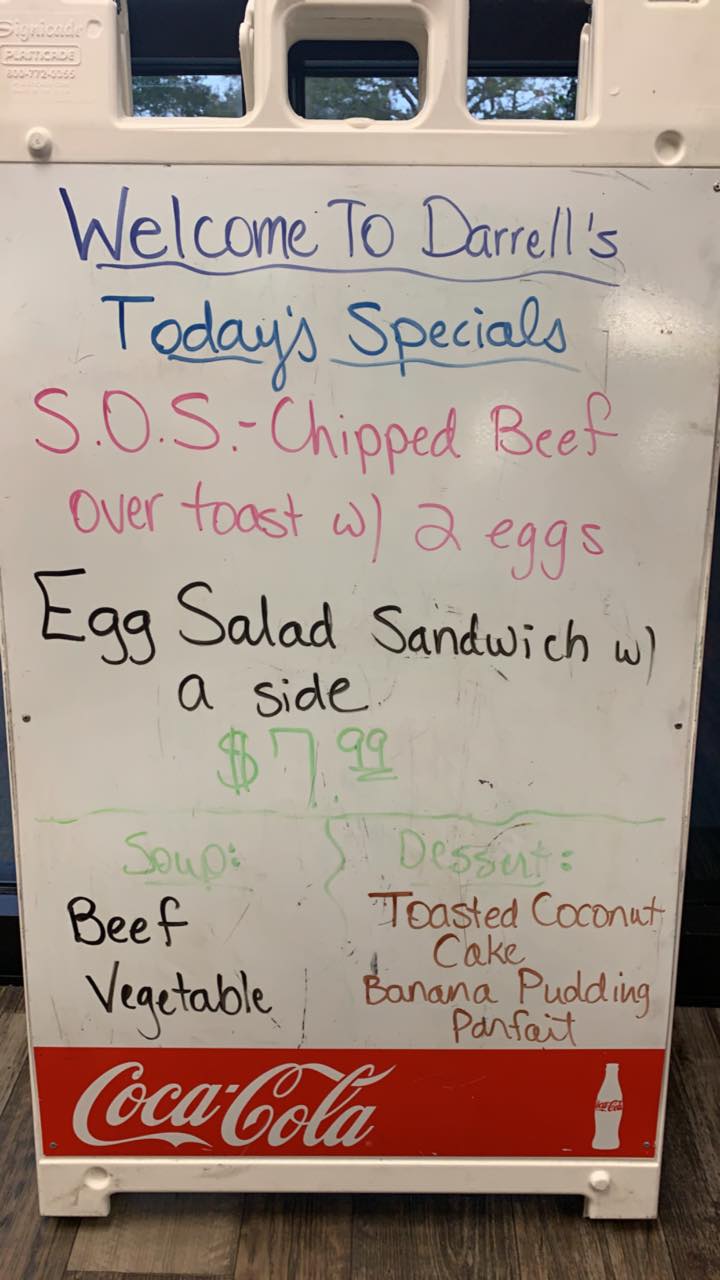 Signicade
PLASTICADE
800-772-0355
Welcome To Darrell's
Today's Specials
S.O.S.-Chipped Beef
over toast w/ 2 eggs
Egg Salad Sandwich w/
a side
$7.99
Soup:
Beef
Vegetable
Dessert:
Toasted Coconut
Cake
Banana Pudding
Parfait
Coca-Cola
Coca-Cola